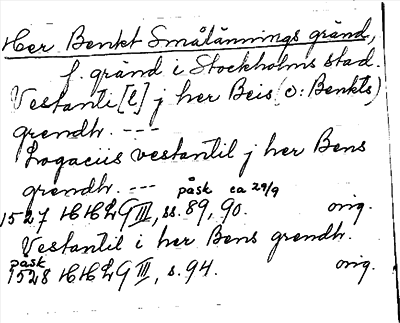 Her Benkt Smålännings gränd,
f. gränd i Stockholms stad.
Vestanti[l] j her Beis (ɔ: Benkts)
grendh. ---
Logaciis vestantil j her Bens
grendh. --- påsk ca 29/9
1527 HHLG III, ss. 89, 90. orig.
Vestantil i her Bens grendh.
påsk
1528 HHLG III, s. 94. orig.